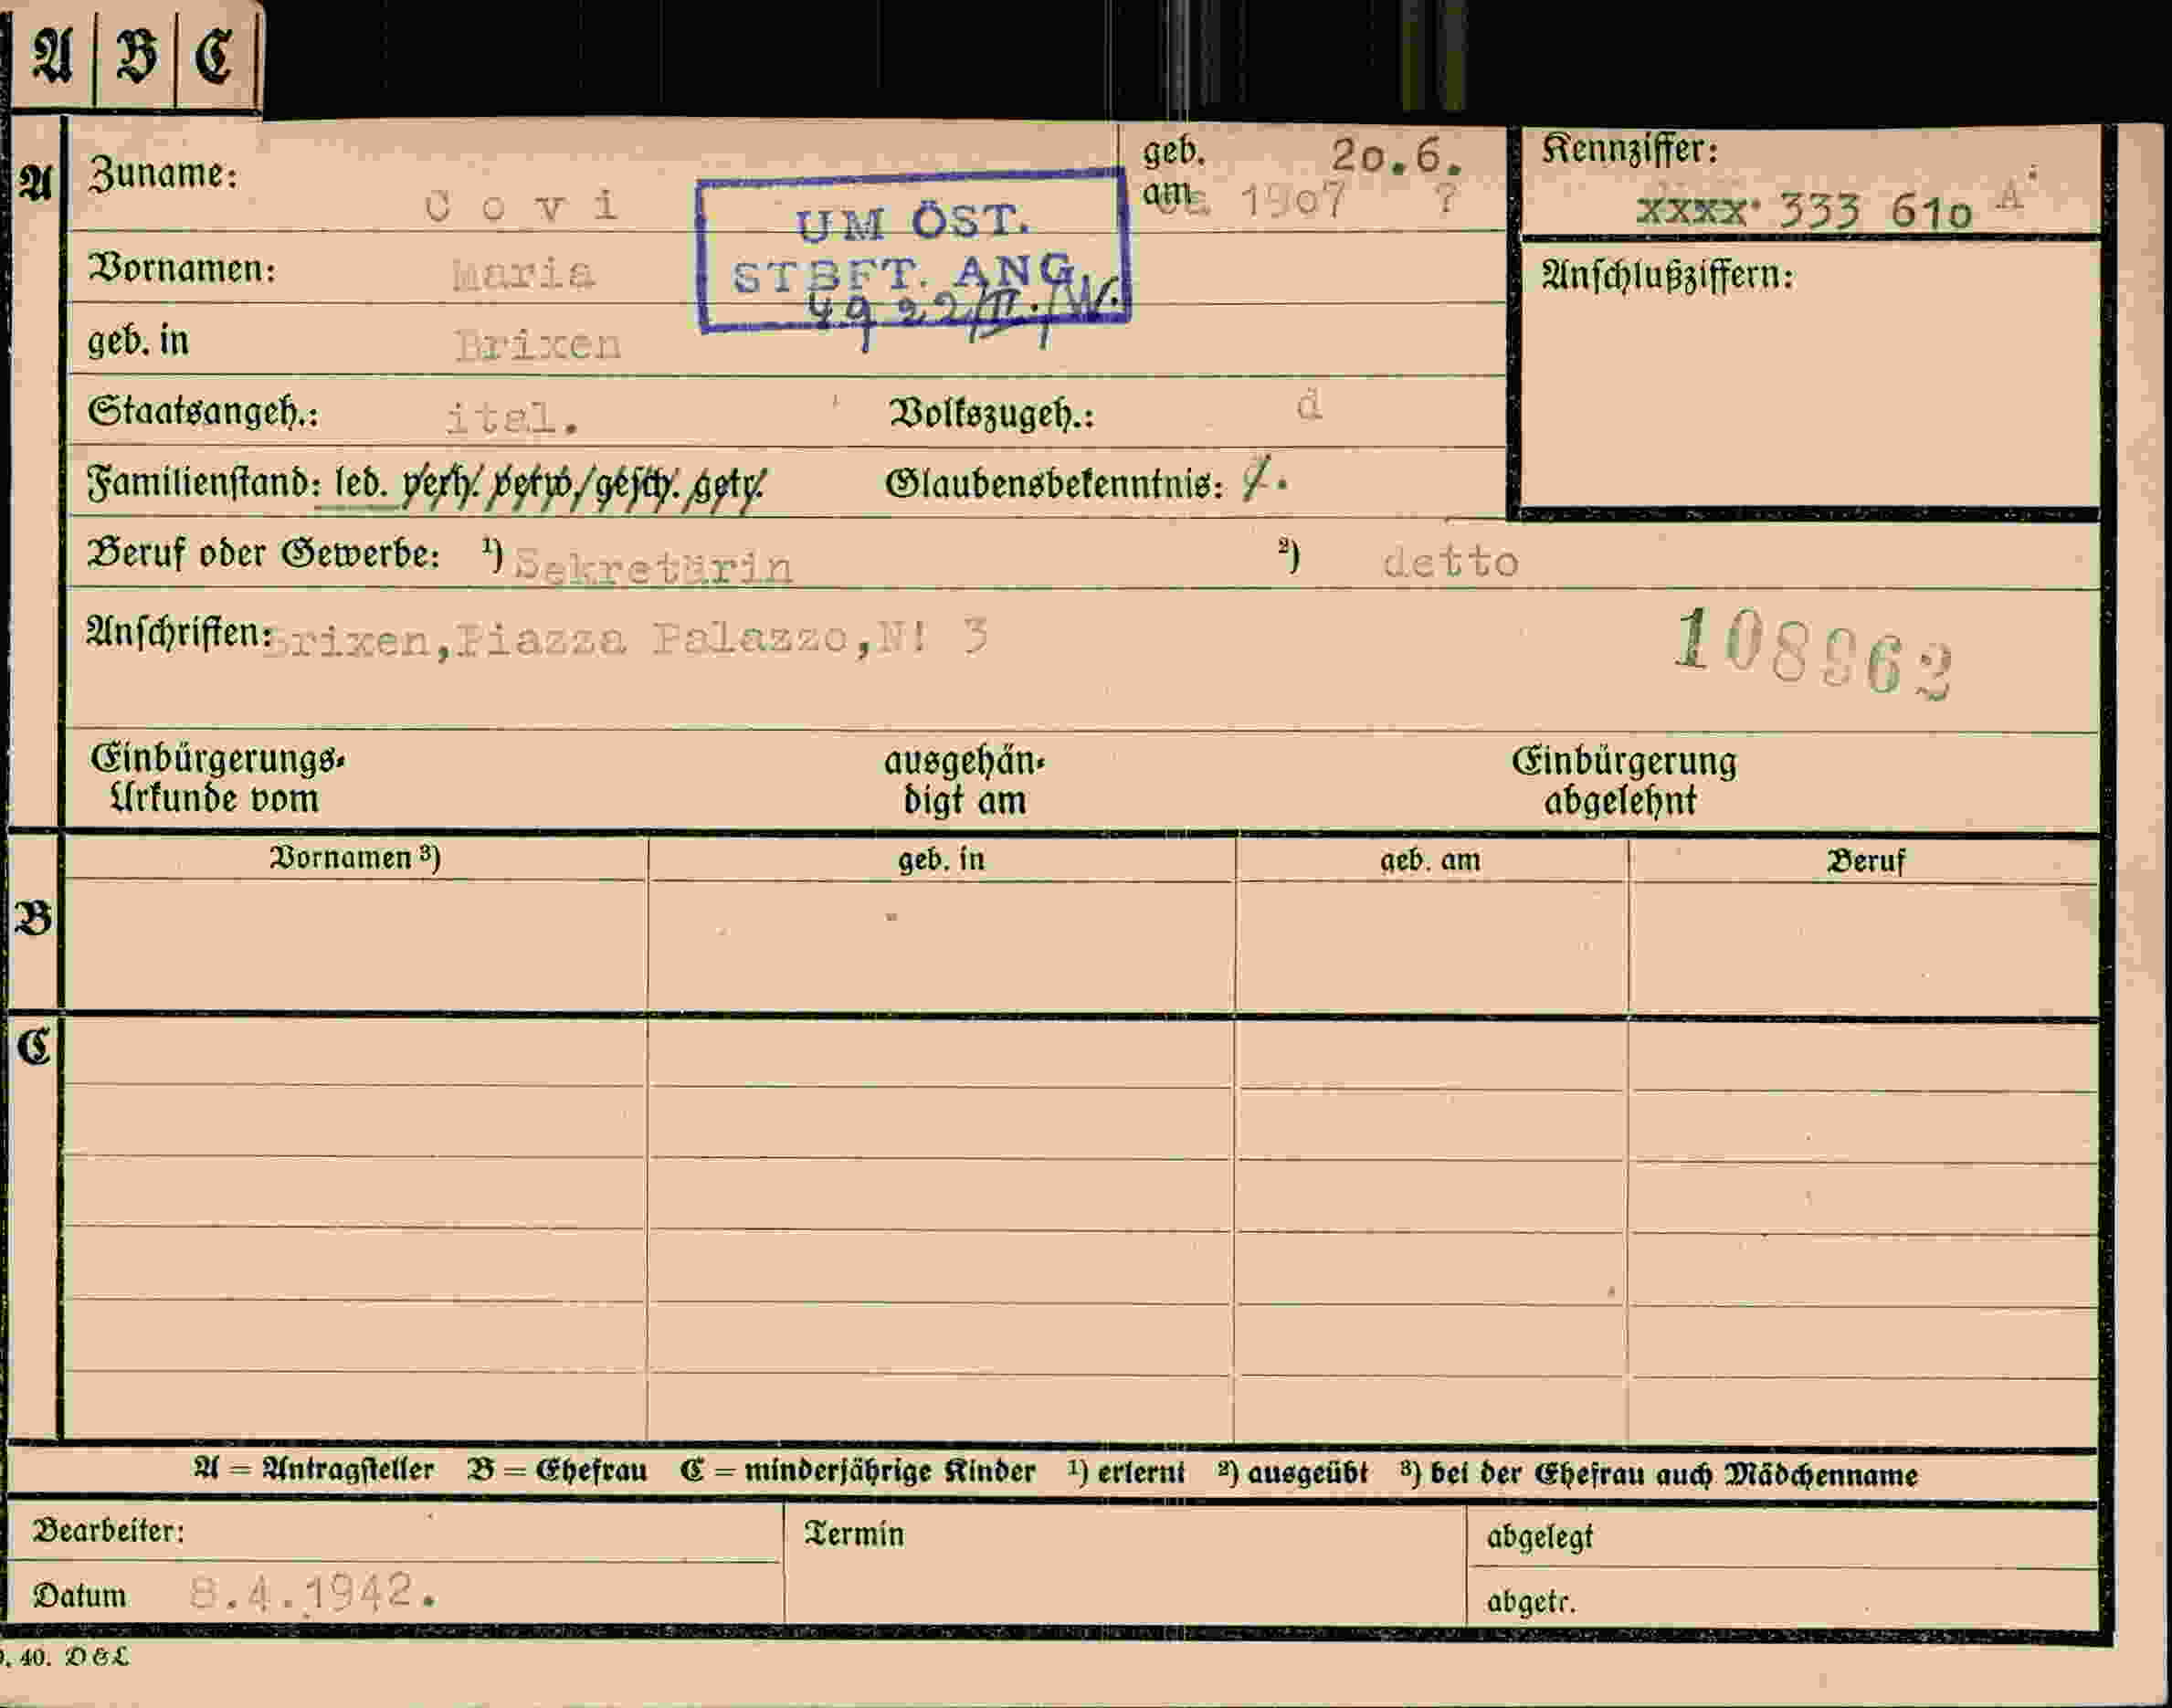 A | B | C
A
Zuname: Covi
geb. am 20.6. 1907 ?
Kennziffer: xxxx 333 610 A
UM ÖST.
STBFT. ANG.
4922/II./W.
Vornamen: Maria
Anschlußziffern:
geb. in Brixen
Staatsangeh.: ital. Volkszugeh.: d
Familienstand: led. verh. verw. gesch. getr. Glaubensbekenntnis:
Beruf oder Gewerbe: 1) Sekretärin 2) detto
Anschriften: Brixen, Piazza Palazzo, N! 3
108962
Einbürgerungs-Urkunde vom ausgehändigt am Einbürgerung abgelehnt
B
Vornamen 3) geb. in geb. am Beruf
C
A = Antragsteller B = Ehefrau C = minderjährige Kinder 1) erlernt 2) ausgeübt 3) bei der Ehefrau auch Mädchenname
Bearbeiter: Termin abgelegt
Datum 8.4.1942. abgetr.
40. D&L